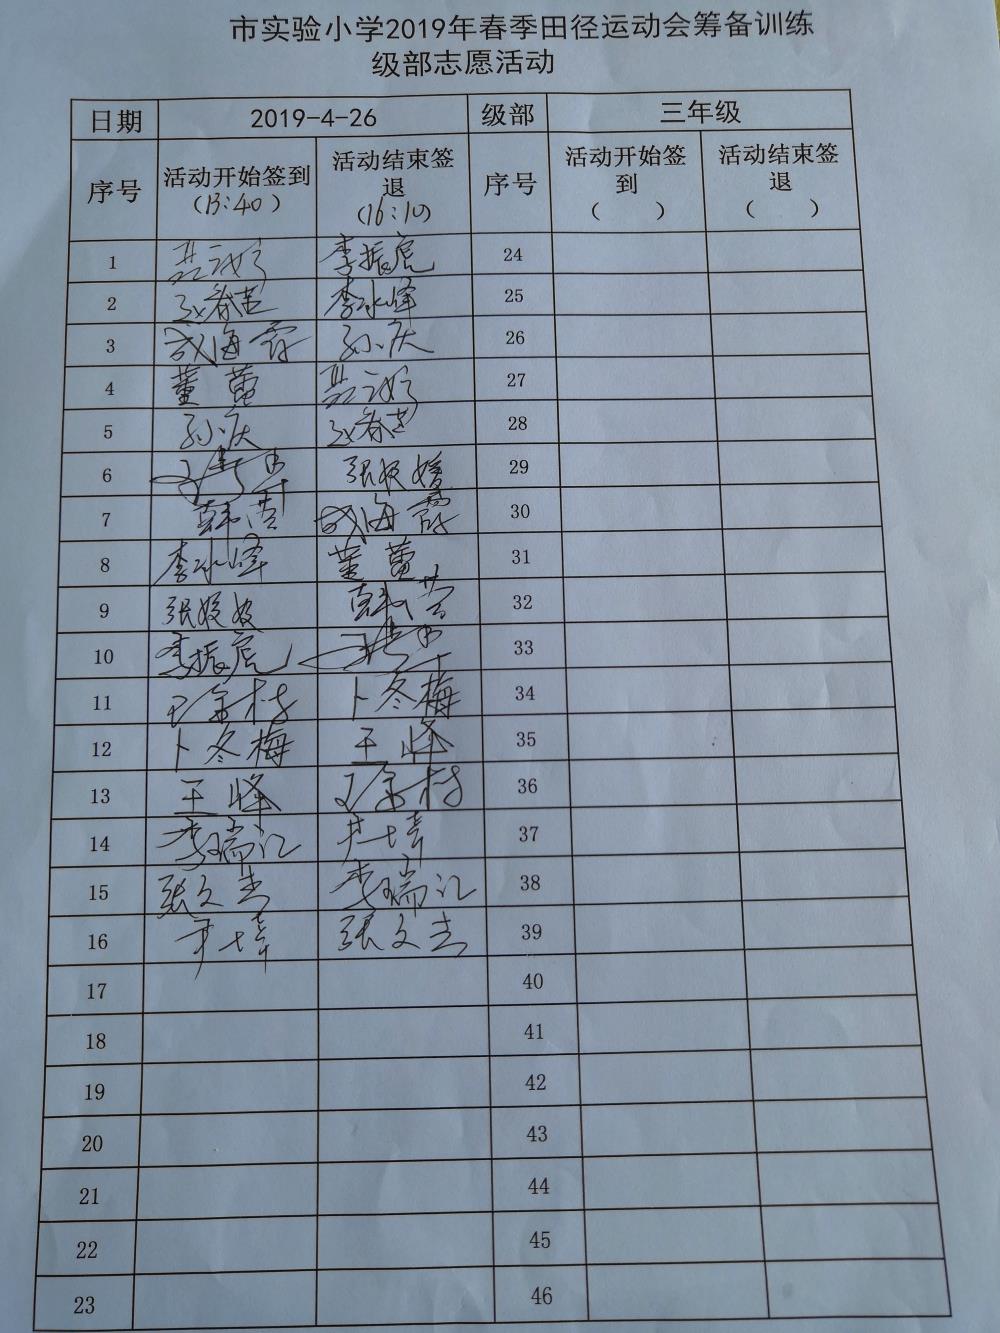 市实验小学2019年春季田径运动会筹备训练
级部志愿活动
日期 2019-4-26 级部 三年级
序号 活动开始签到 (13:40) 活动结束签退 (16:10) 序号 活动开始签到 ( ) 活动结束签退 ( )
1 李振虎 24
2 李冰峰 25
3 成海霞 孙庆 26
4 董蕾 27
5 孙庆 28
6 张媛媛 29
7 韩蕾 成海霞 30
8 李冰峰 董蕾 31
9 张媛媛 韩蕾 32
10 李振虎 33
11 卜冬梅 34
12 卜冬梅 王峰 35
13 王峰 36
14 李瑞江 37
15 张文杰 李瑞江 38
16 张文杰 39
17 40
18 41
19 42
20 43
21 44
22 45
23 46